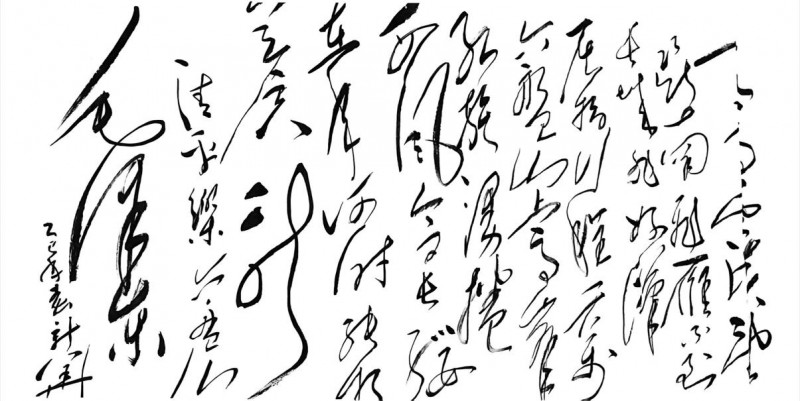 天高云淡望
断南飛雁不到
长城非好漢
屈指行程二万
六盘山上高峰
红旗漫捲
西风今日长缨
在手何时缚住
苍龙
清平樂六盘山
毛泽东
乙巳年